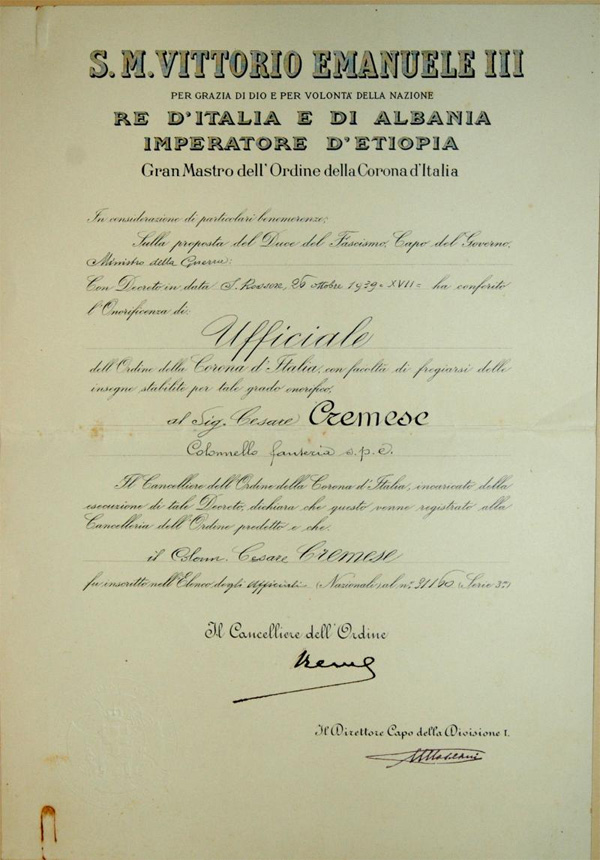 S. M. VITTORIO EMANUELE III
PER GRAZIA DI DIO E PER VOLONTÀ DELLA NAZIONE
RE D'ITALIA E DI ALBANIA
IMPERATORE D'ETIOPIA
Gran Mastro dell'Ordine della Corona d'Italia
In considerazione di particolari benemerenze;
Sulla proposta del Duce del Fascismo, Capo del Governo,
Ministro della Guerra:
Con Decreto in data S. Rossore, 26 ottobre 1939=XVII= ha conferito
l'Onorificenza di:
Ufficiale
dell'Ordine della Corona d'Italia, con facoltà di fregiarsi delle
insegne stabilite per tale grado onorifico,
al Sig. Cesare Cremese
Colonnello fanteria s.p.e.
Il Cancelliere dell'Ordine della Corona d'Italia, incaricato della
esecuzione di tale Decreto, dichiara che questo venne registrato alla
Cancelleria dell'Ordine predetto e che
il Colonn. Cesare Cremese
fu inscritto nell'Elenco degli Ufficiali (Nazionali) al n.° (Serie 3ª)
Il Cancelliere dell'Ordine
Il Direttore Capo della Divisione 1.